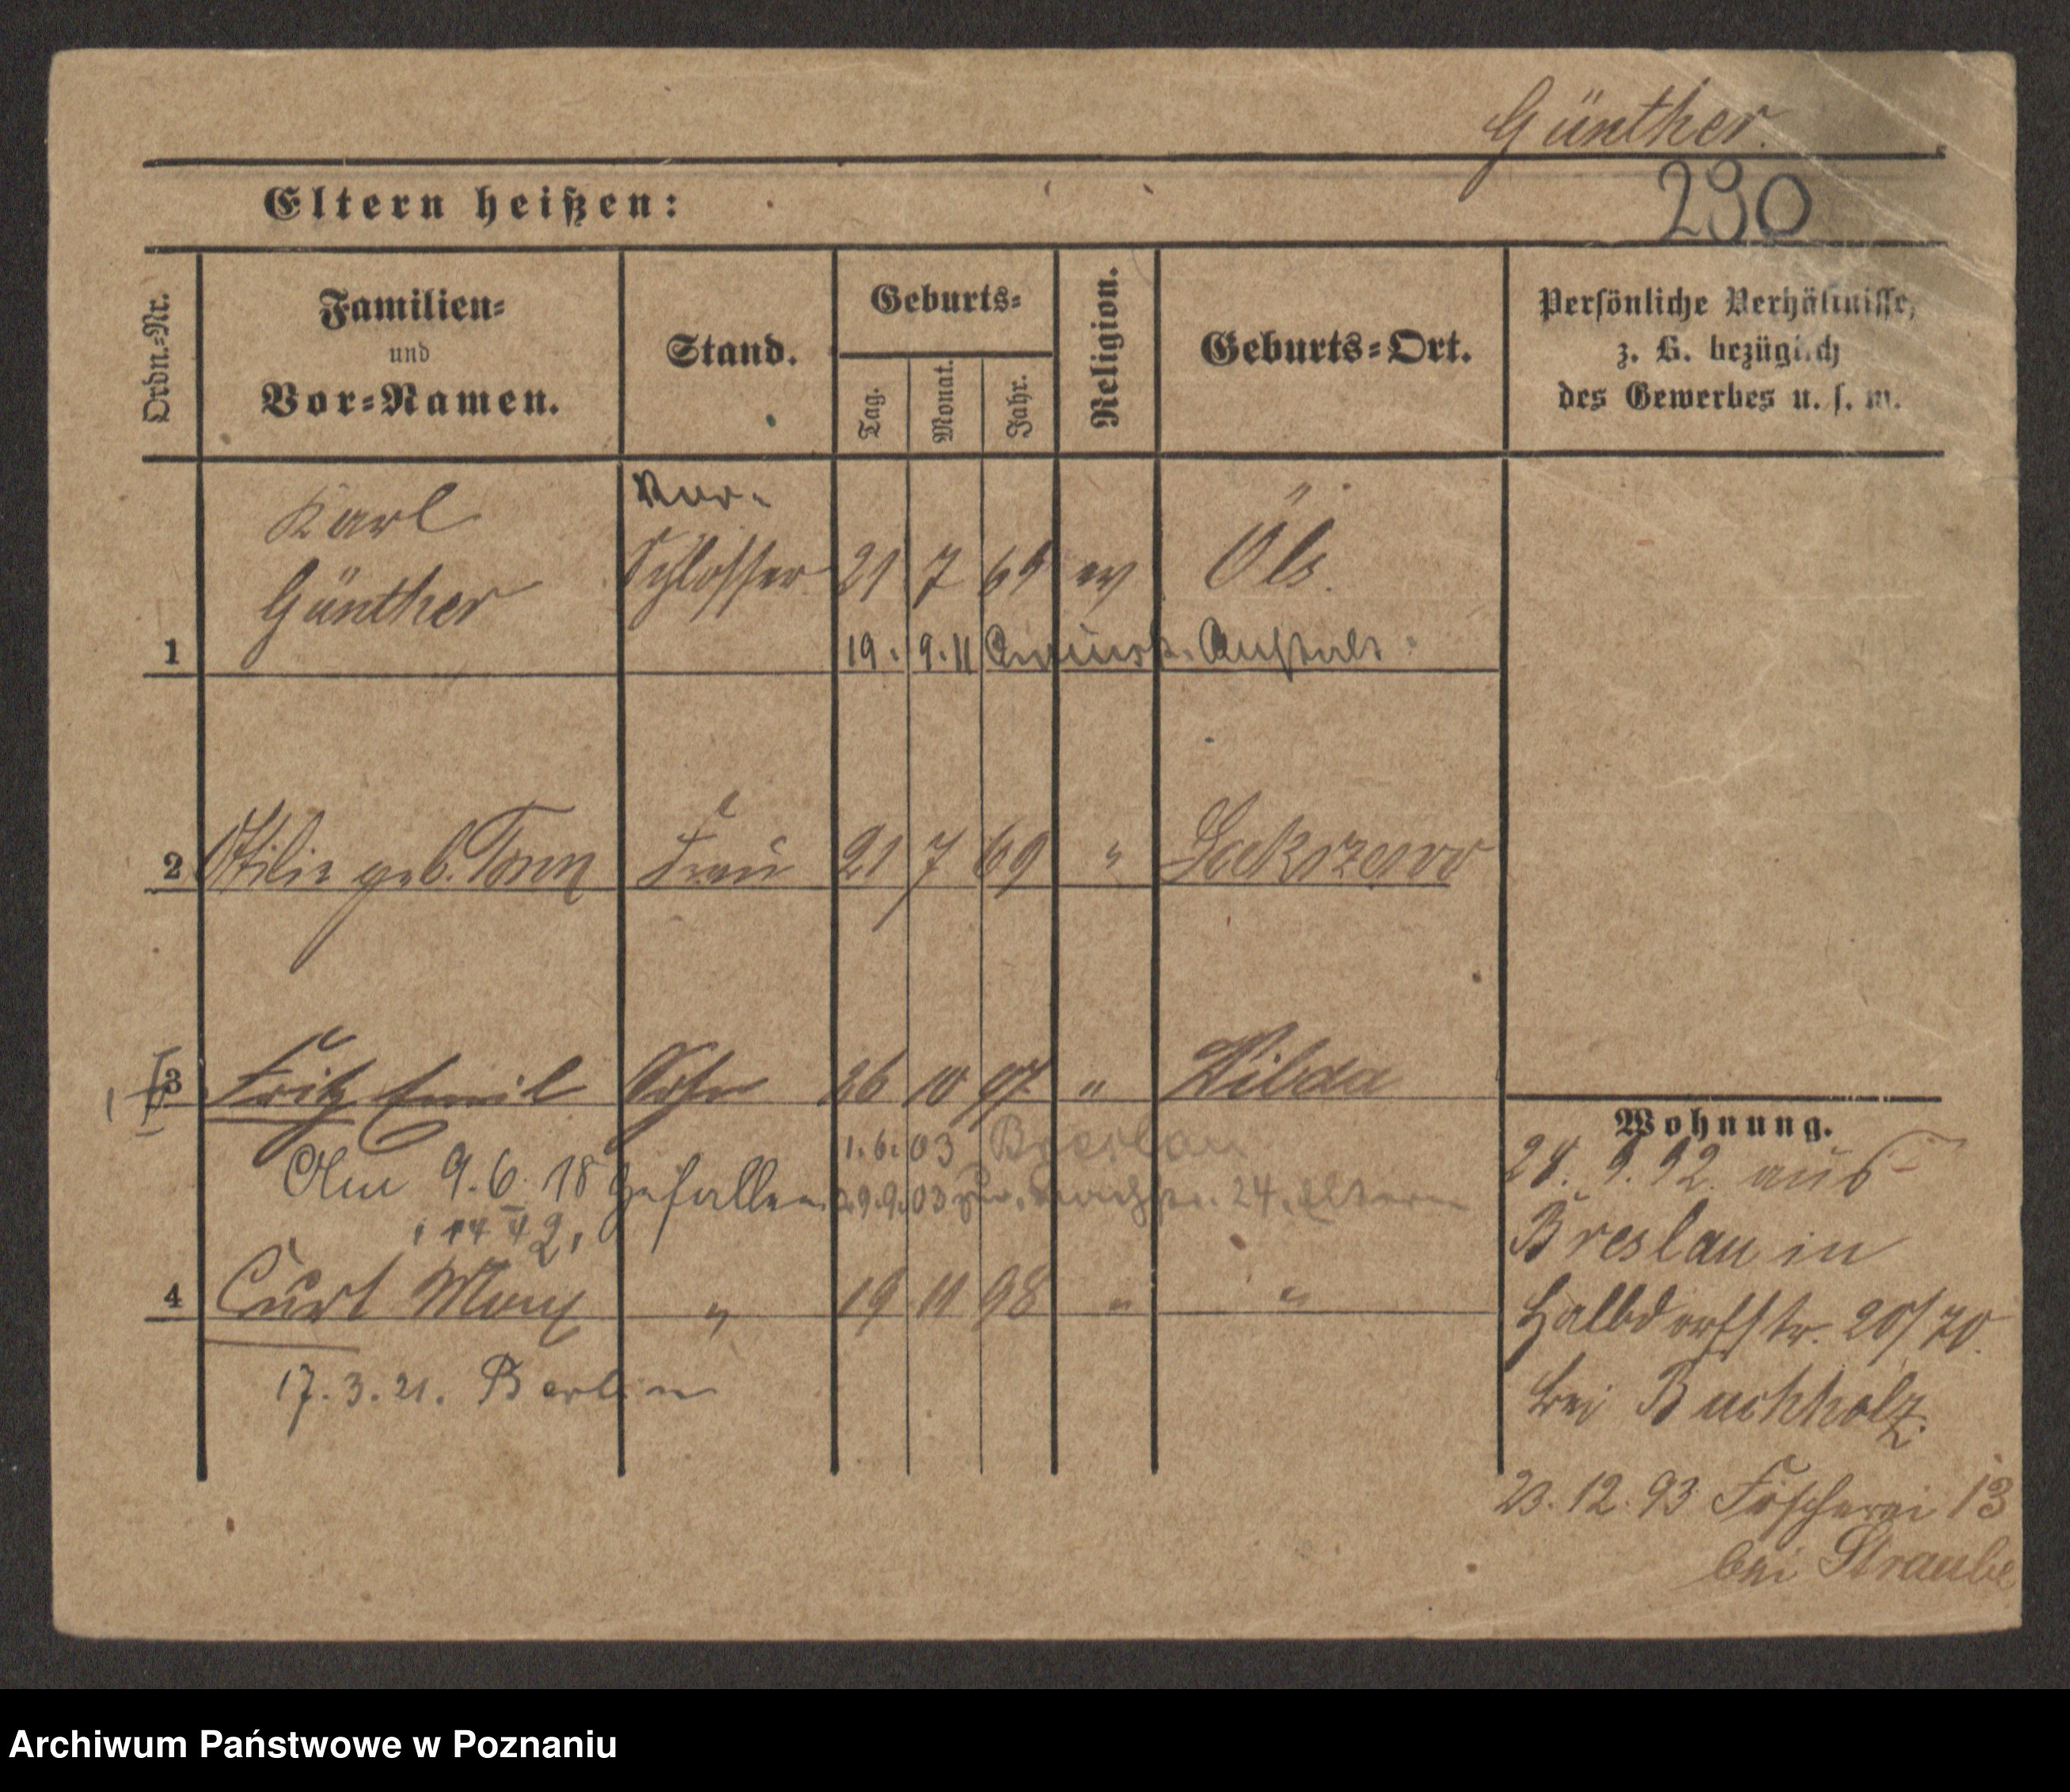 Günther.
290
Eltern heißen:
Ordn.-Nr.
Familien-
und
Vor-Namen.
Stand.
Geburts-
Tag.
Monat.
Jahr.
Religion.
Geburts-Ort.
Persönliche Verhältnisse,
z. B. bezüglich
des Gewerbes u. s. w.
Karl
Günther
Vor-
Schlosser
21 7 69 ev Öls.
1
19. 9. 11 Anstalt
2 Ottilie geb. Tonn Frau 21 7 69 "
3 Fritz Emil Sohn 26 10 97 " Wilda
1. 6. 03 Breslau
Am 9. 6. 18 gefallen
29. 9. 03 zur. 24. Eltern
4 Curt Max " 19 11 98 " "
17. 3. 21. Berlin
Wohnung.
24. 9. 92. aus
Breslau in
Halbdorfstr. 20/70.
bei Buchholz.
23. 12. 93 Fischerei 13
bei Straube
Archiwum Państwowe w Poznaniu